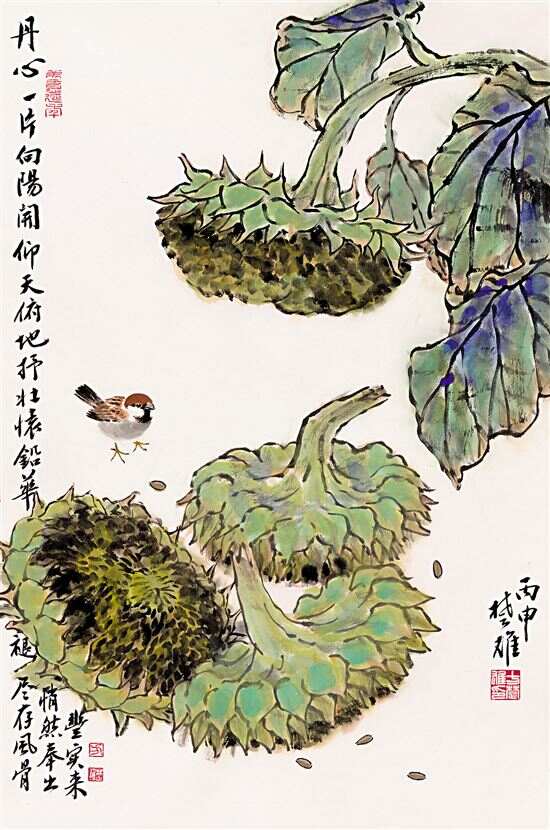 丹心一片向陽開仰天俯地抒壯懷鉛華
褪尽存風骨
悄然奉出
豐实来
丙申
楚雄